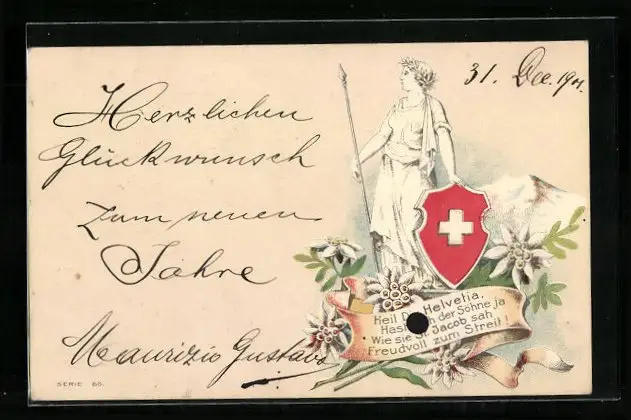 31. Dec. 1901.
Herzlichen
Glückwunsch
zum neuen
Jahre
Maurizio Gustavo
Heil Dir Helvetia,
Hast noch der Söhne ja
Wie sie St. Jacob sah,
Freudvoll zum Streit!
SERIE 60.